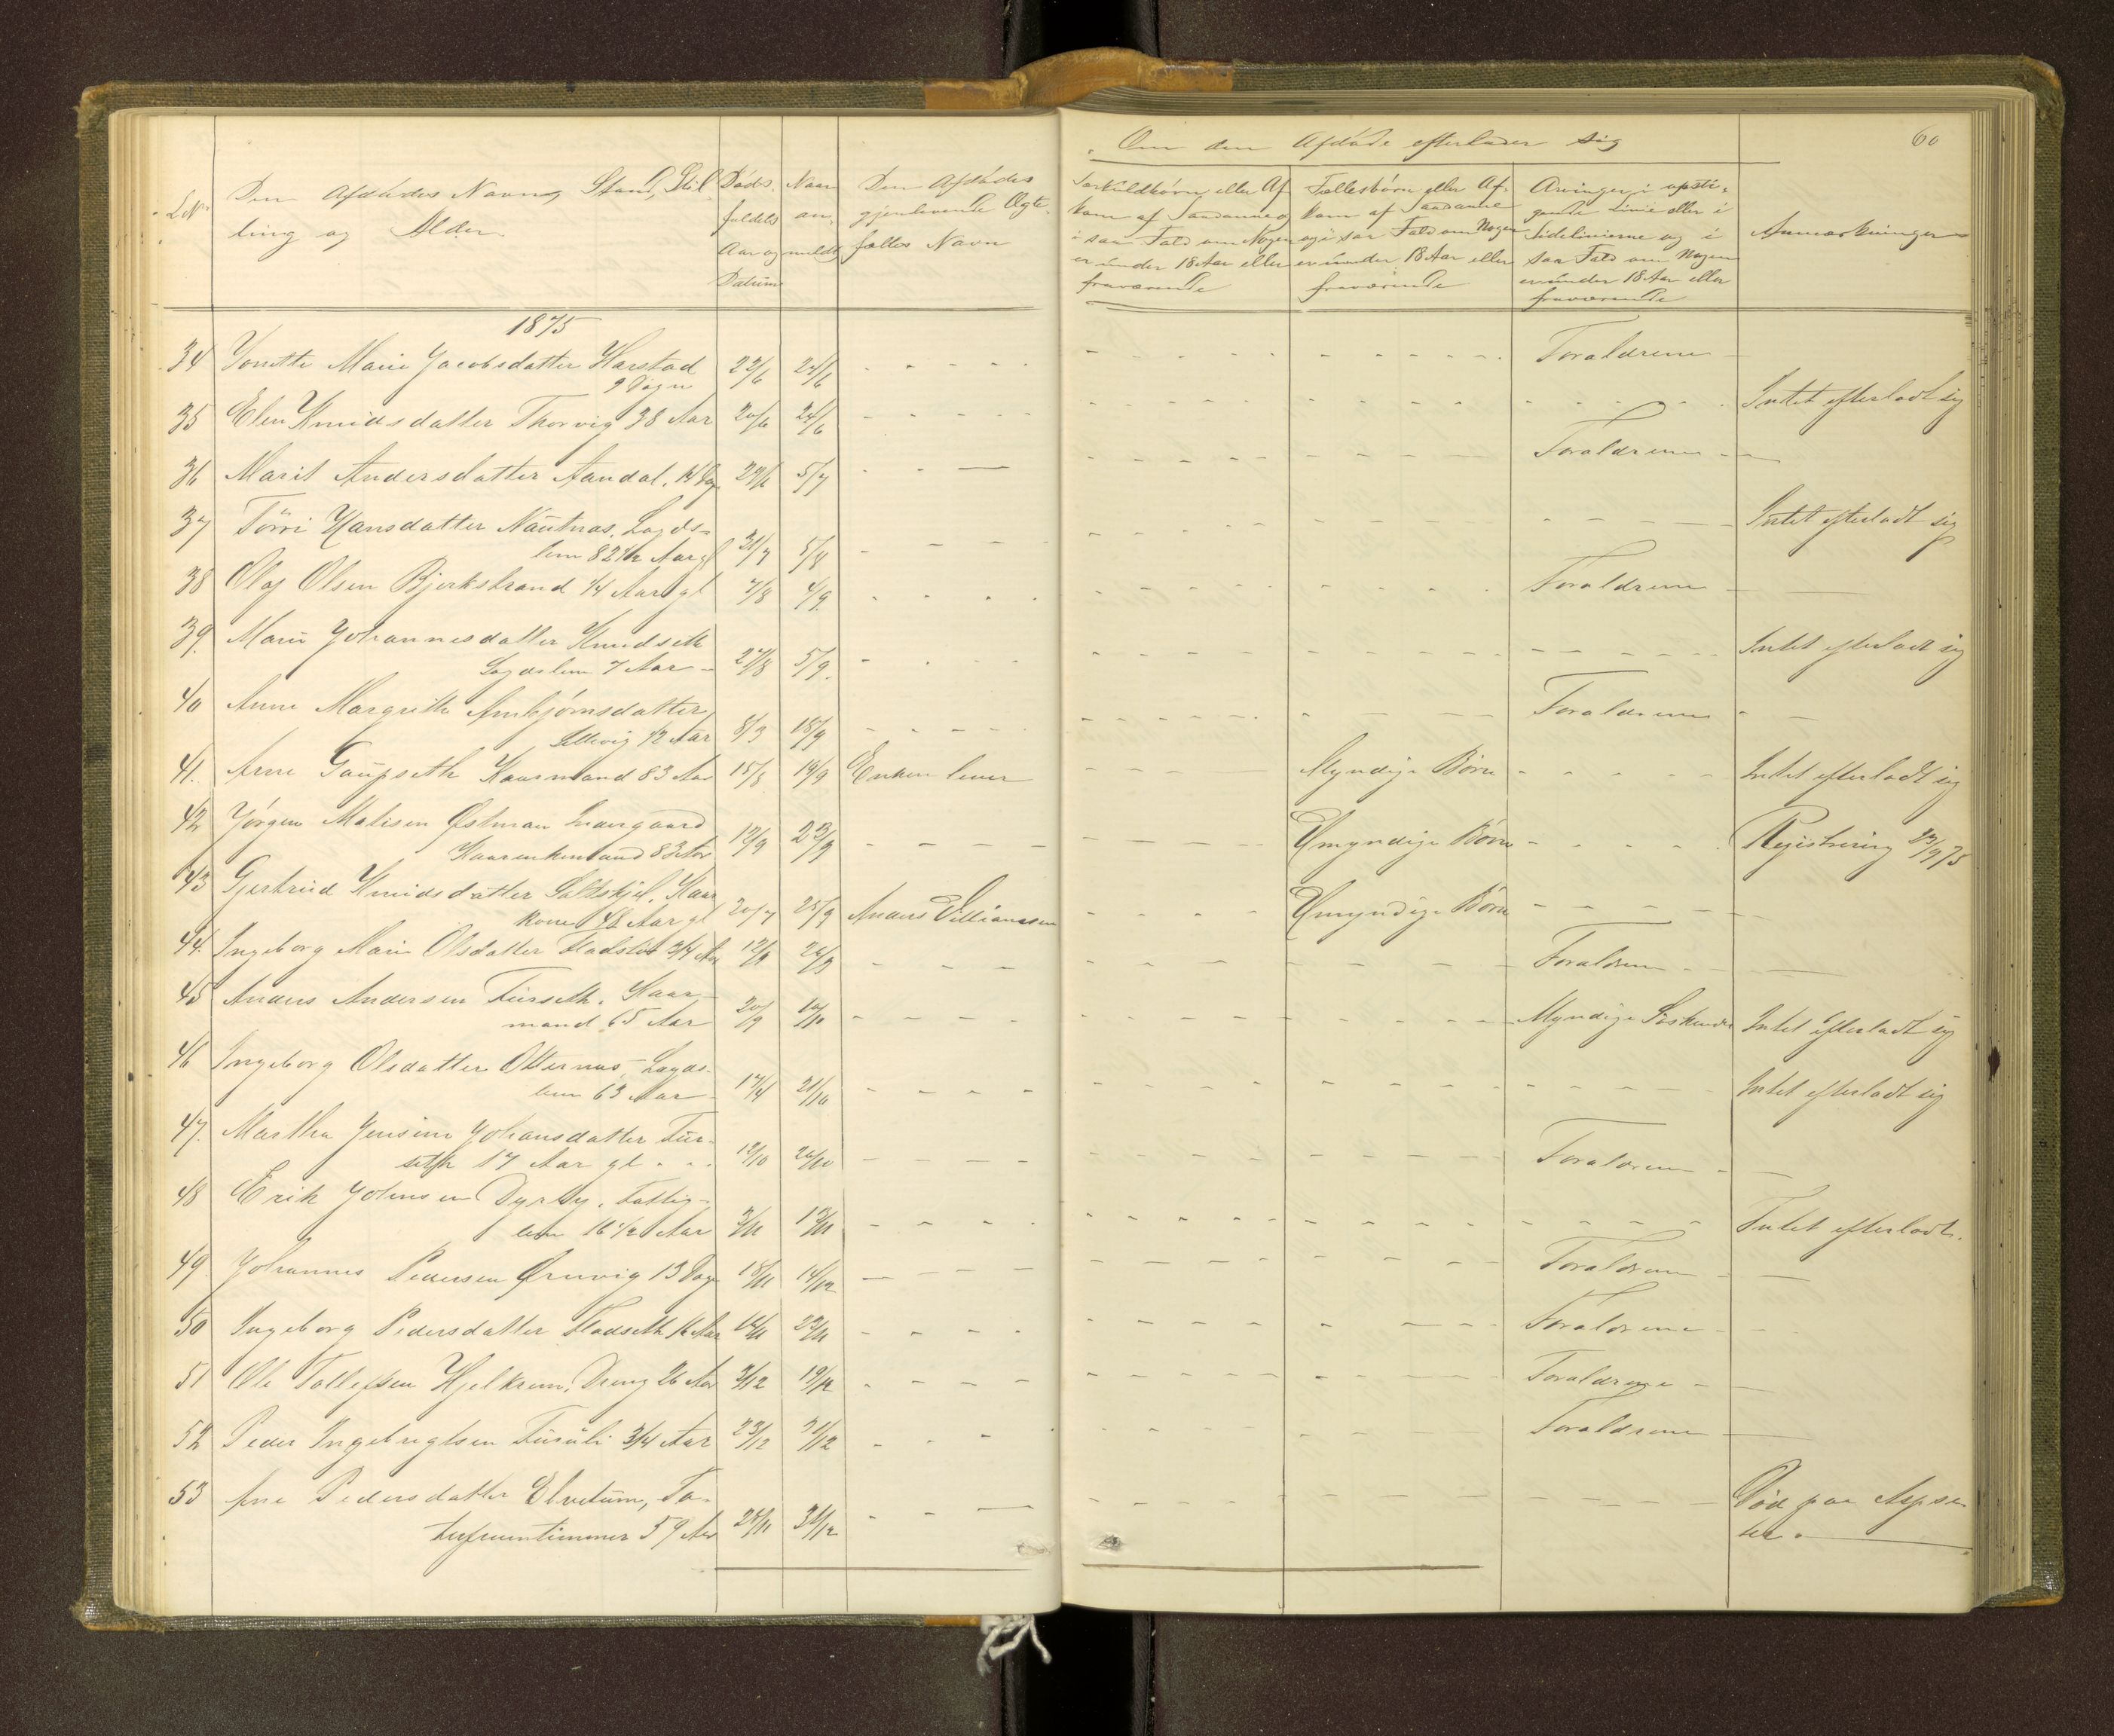 60
Om den Afdøde efterlader sig
L.No Den Afdødes Navn, Stand, Stil-
ling og Alder.
Døds-
faldets
Aar og
Datum
Naar
an-
meldt
Den Afdødes
gjenlevende Ægte-
fælles Navn
Særkuldbørn eller Af
kom af Saadanne og
i saa Fald om Nogen
er under 18 Aar eller
fraværende
Fællesbørn eller Af-
kom af Saadanne
og i saa Fald om Nogen
er under 18 Aar eller
fraværende
Arvinger i opsti-
gende Linie eller i
Sidelinierne og i
saa Fald om Nogen
er under 18 Aar eller
fraværende
Anmærkninger
1875
34 Jonette Marie Jacobsdatter Harstad
9 Dage 22/6 24/6 Forældrene
35 Elen Knudsdatter Thorvig 38 Aar 20/6 24/6 Intet efterladt sig
36 Marit Andersdatter Aandal. 14 Dage 5/7 Forældrene
37 Hansdatter Nautnæs. Lægds-
lem 82 1/2 Aar gl 31/7 5/8 Intet efterladt sig
38 Olaf Olsen Bjerkstrand 1/4 Aar gl 7/8 4/9 Forældrene
39. Marie Johannesdatter Knudseth
Lægdslem 7 Aar 27/8 5/9. Intet efterladt sig
40 Anne Margrethe Arnbjørnsdatter
1/2 Aar 8/3 18/9 Forældrene
41. Arne Gaupseth Kaarmand 83 Aar 15/8 19/9 Enken lever Myndige Børn Intet efterladt sig
42 Jørgen Østman Indergaard
Kaarenkemand 83 Aar 12/9 23/9 Umyndige Børn Registrering 23/9 75
43 Gjertrud Knudsdatter Saltskjel. Kaar
kone 48 Aar gl 20/7 25/9 Anders Umyndige Børn
44. Ingeborg Marie Olsdatter 3/4 Aar 12/9 26/9 Forældrene
45 Anders Andersen Furseth. Kaar-
mand 65 Aar 20/9 10/10 Myndige Søskende Intet efterladt sig
46 Ingeborg Olsdatter Otternæs, Lægds-
lem 63 Aar 17/4 21/10 Intet efterladt sig
47. Martha Jensine Johansdatter Fur-
seth 17 Aar gl 12/10 26/10 Forældrene
48 Erik Johnsen Dyrby. Fattig-
lem 16 1/2 Aar 3/11 12/11 Intet efterladt.
49 Johannes Pedersen Ørnvig 13 Dage 18/11 14/12 Forældrene
50 Ingeborg Pedersdatter Stadseth 16 Aar 14/11 29/11 Forældrene
51 Ole Tollefsen Hjelkrem. Dreng 26 Aar 3/12 19/12 Forældrene
52 Peder Ingebrigtsen Fursüli 3/4 Aar 23/12 31/12 Forældrene
53 Ane Pedersdatter Elvetun, Tø-
tefruentimmer 59 Aar 28/11 31/12 Død paa